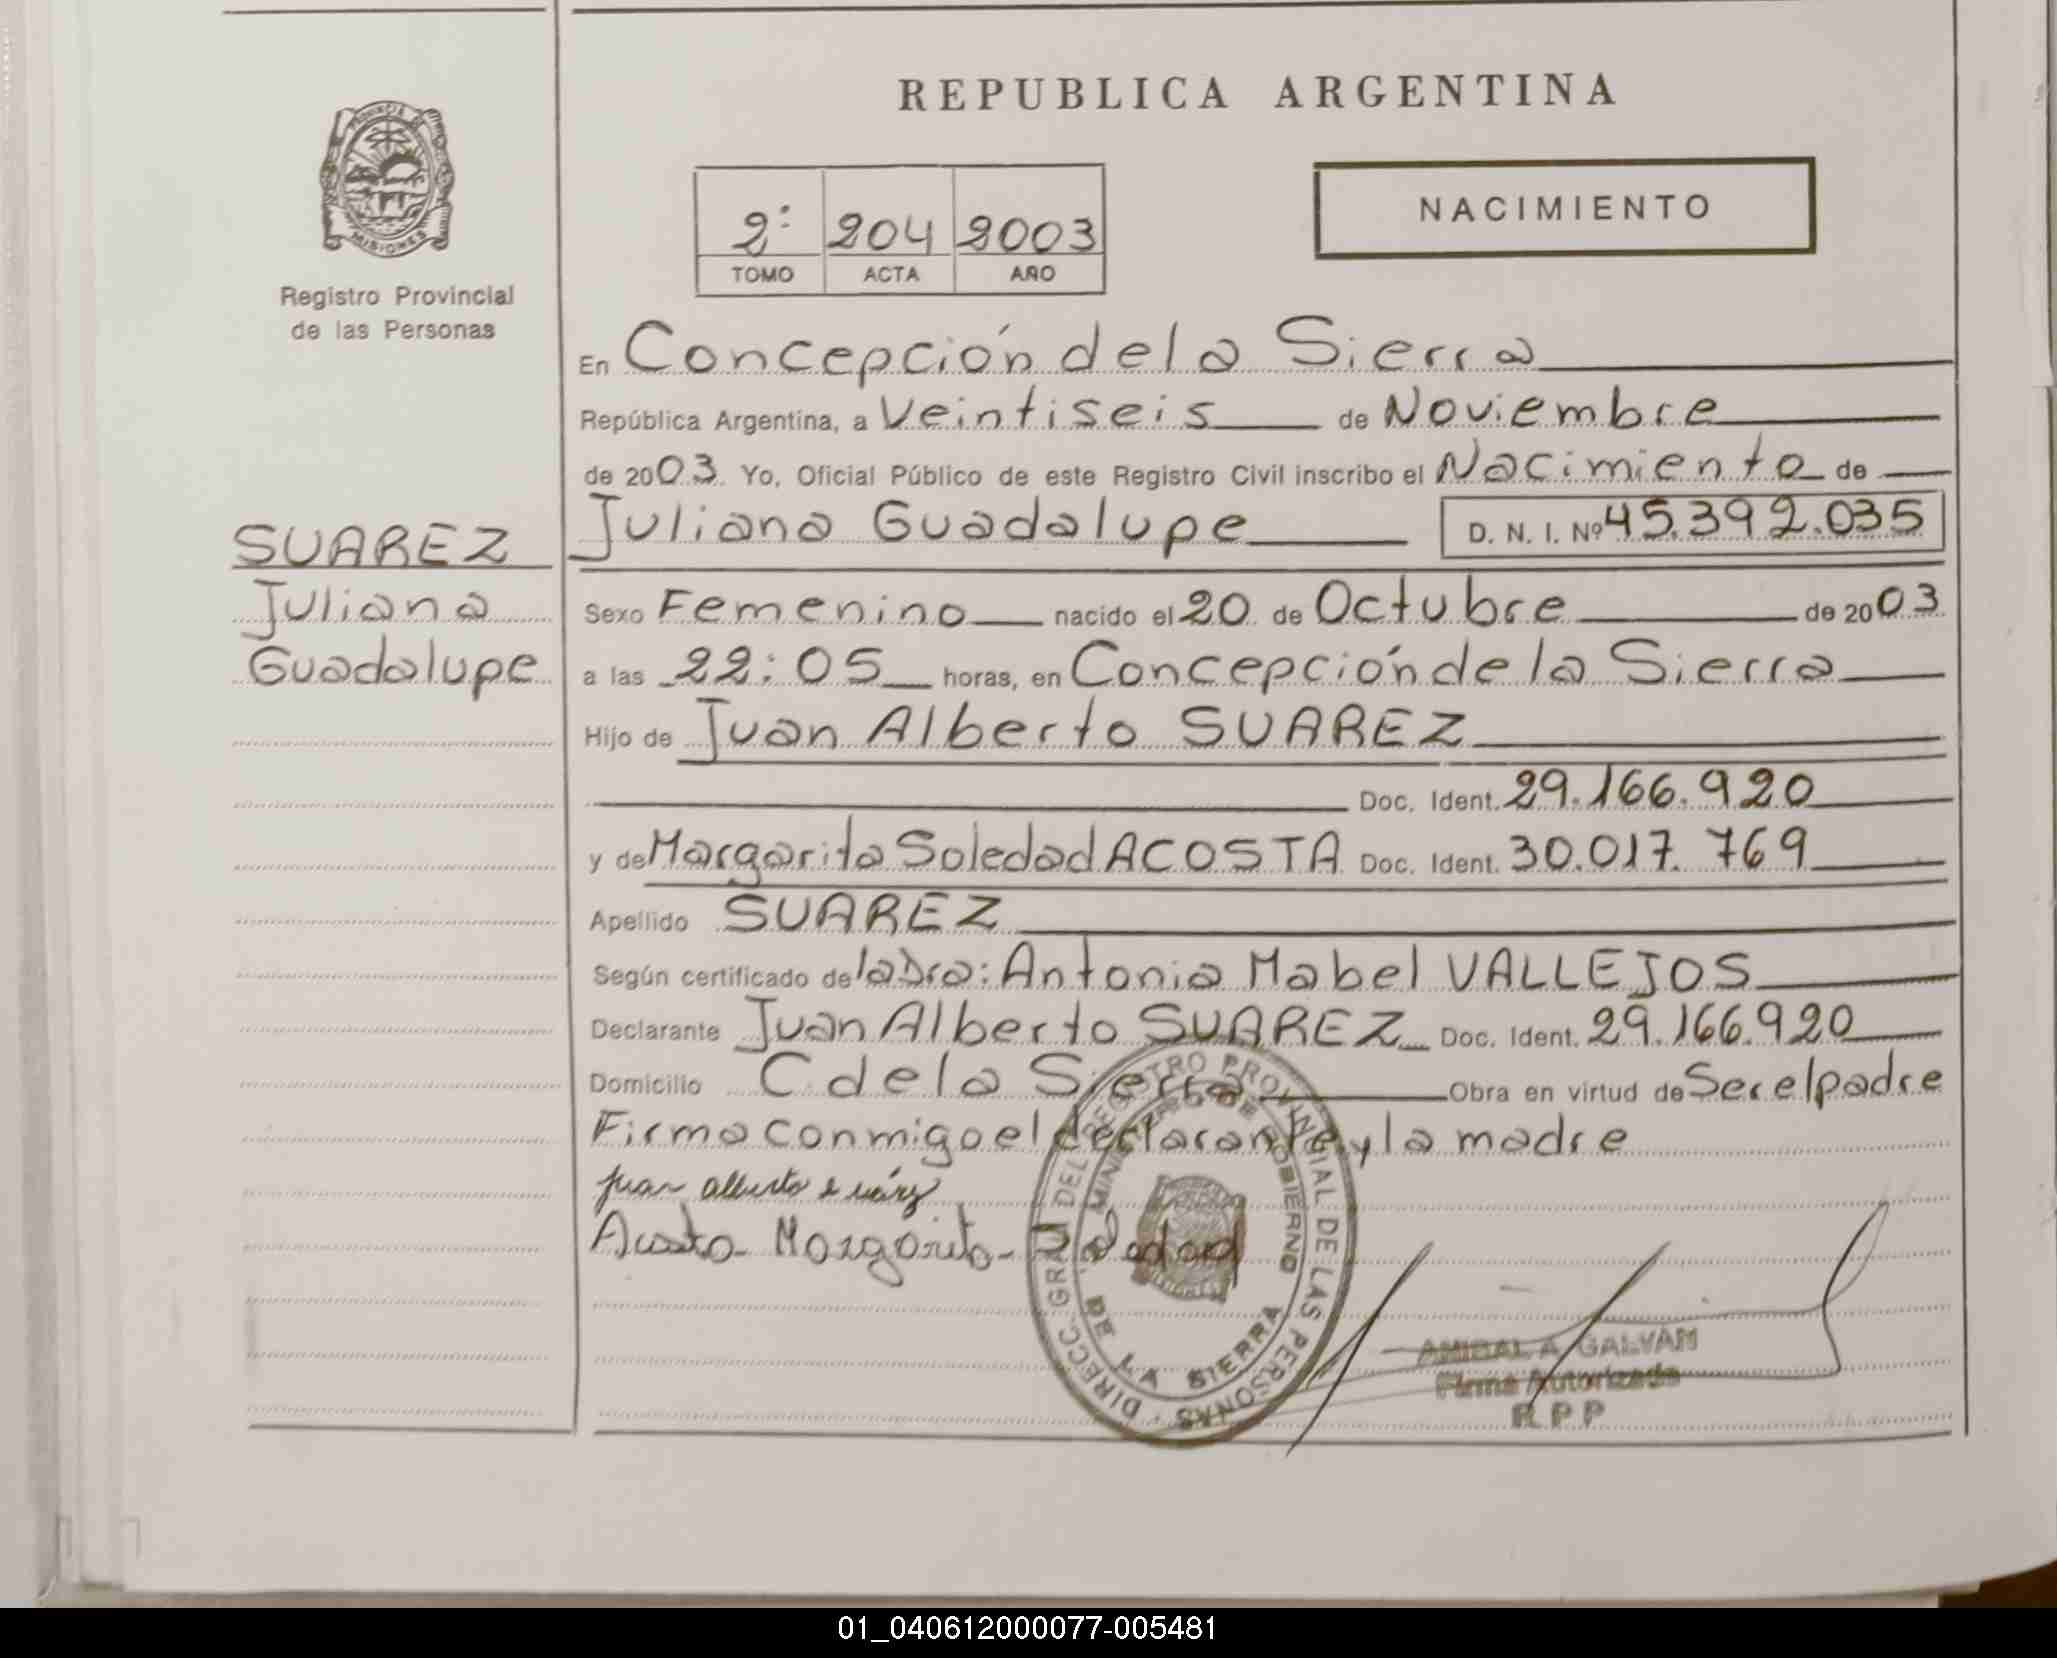 REPUBLICA ARGENTINA
PROVINCIA DE MISIONES
Registro Provincial
de las Personas
2º 204 2003
TOMO ACTA AÑO
NACIMIENTO
En Concepción de la Sierra
República Argentina, a Veintiseis de Noviembre
de 2003. Yo, Oficial Público de este Registro Civil inscribo el Nacimiento de
Juliana Guadalupe D. N. I. Nº 45.392.035
SUAREZ
Juliana
Guadalupe
Sexo Femenino nacido el 20 de Octubre de 2003
a las 22:05 horas, en Concepción de la Sierra
Hijo de Juan Alberto SUAREZ
Doc. Ident. 29.166.920
y de Margarita Soledad ACOSTA Doc. Ident. 30.017.769
Apellido SUAREZ
Según certificado de la Dra: Antonia Mabel VALLEJOS
Declarante Juan Alberto SUAREZ Doc. Ident. 29.166.920
Domicilio C de la Sierra Obra en virtud de Ser el padre
Firma conmigo el declarante y la madre
juan alberto suárez
Acosta Margarita Soledad
DIRECC. GRAL DEL REGISTRO PROVINCIAL DE LAS PERSONAS
MINISTERIO DE GOBIERNO
DE LA SIERRA
ANIBAL A. GALVAN
Firma Autorizada
R P P
01_040612000077-005481